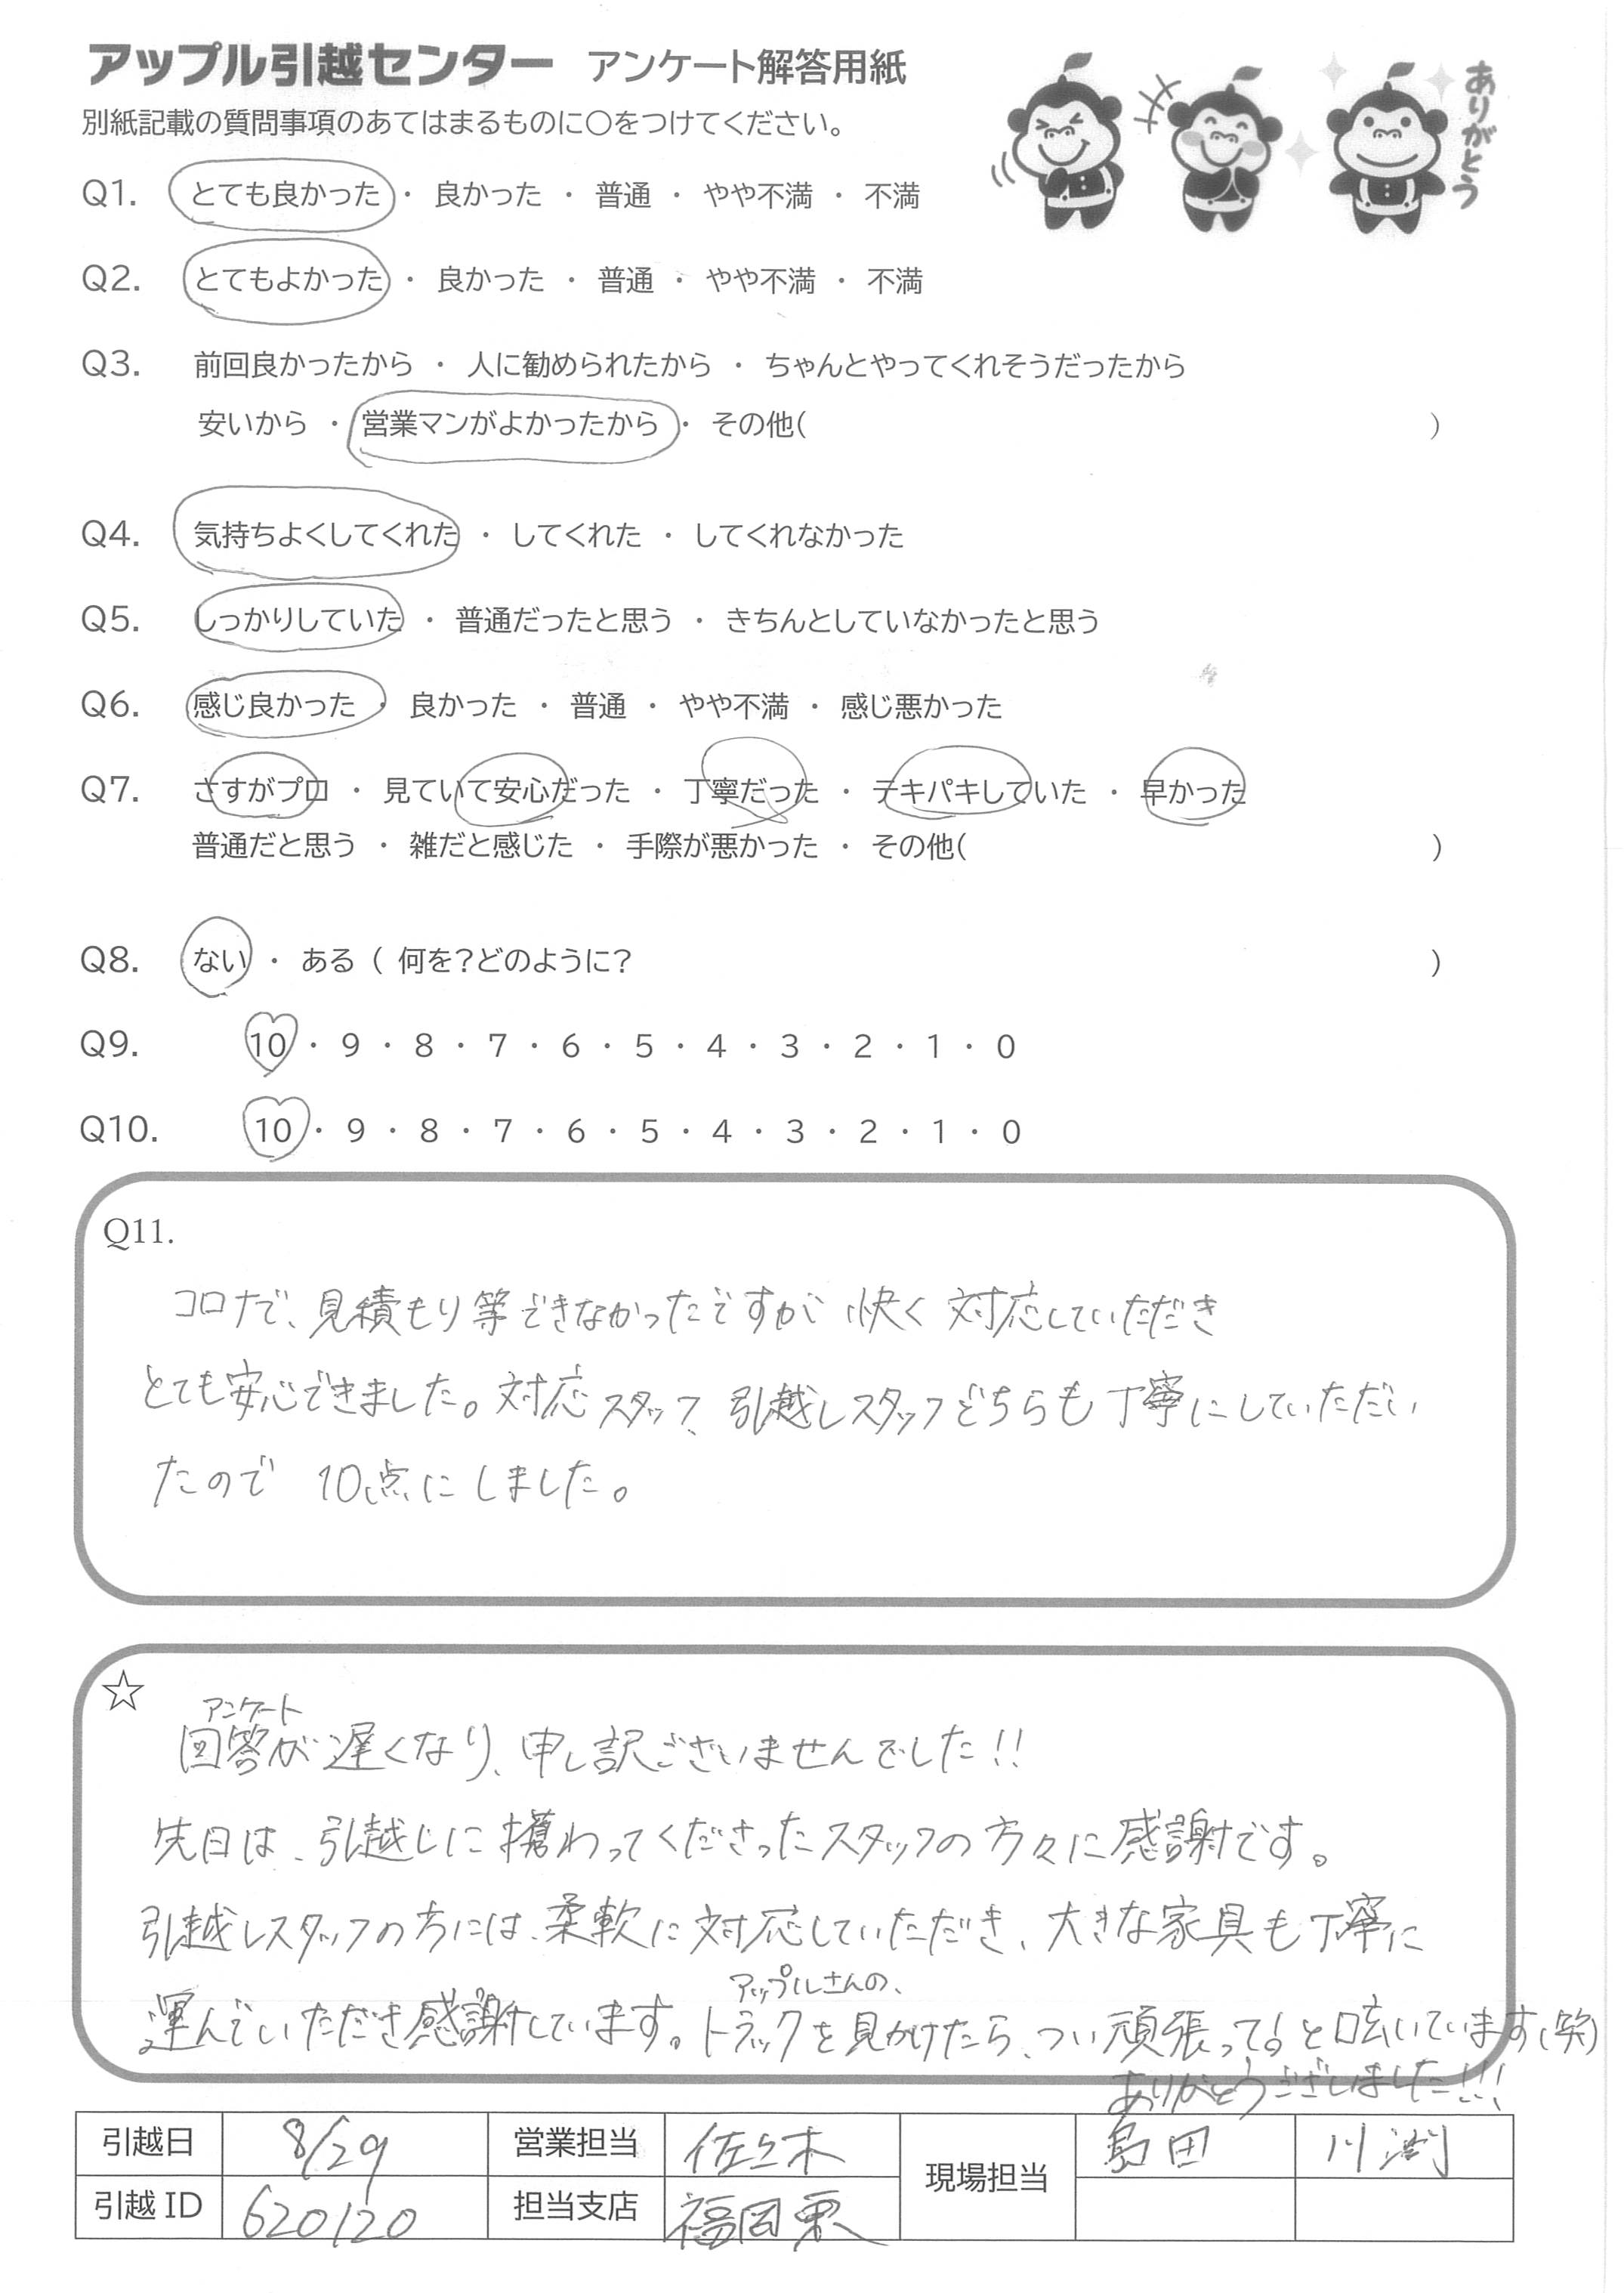 アップル引越センター アンケート解答用紙
ありがとう
別紙記載の質問事項のあてはまるものに○をつけてください。
Q1. とても良かった ・ 良かった ・ 普通 ・ やや不満 ・ 不満
Q2. とてもよかった ・ 良かった ・ 普通 ・ やや不満 ・ 不満
Q3. 前回良かったから ・ 人に勧められたから ・ ちゃんとやってくれそうだったから
安いから ・ 営業マンがよかったから ・ その他( )
Q4. 気持ちよくしてくれた ・ してくれた ・ してくれなかった
Q5. しっかりしていた ・ 普通だったと思う ・ きちんとしていなかったと思う
Q6. 感じ良かった ・ 良かった ・ 普通 ・ やや不満 ・ 感じ悪かった
Q7. さすがプロ ・ 見ていて安心だった ・ 丁寧だった ・ テキパキしていた ・ 早かった
普通だと思う ・ 雑だと感じた ・ 手際が悪かった ・ その他( )
Q8. ない ・ ある ( 何を?どのように? )
Q9. 10 ・ 9 ・ 8 ・ 7 ・ 6 ・ 5 ・ 4 ・ 3 ・ 2 ・ 1 ・ 0
Q10. 10 ・ 9 ・ 8 ・ 7 ・ 6 ・ 5 ・ 4 ・ 3 ・ 2 ・ 1 ・ 0
Q11.
コロナで、見積もり等できなかったですが 快く 対応していただき
とても安心できました。対応スタッフ、引越しスタッフどちらも丁寧にしていただい
たので 10点にしました。
☆
アンケート
回答が遅くなり、申し訳ございませんでした!!
先日は、引越しに携わってくださったスタッフの方々に感謝です。
引越しスタッフの方には、柔軟に対応していただき、大きな家具も丁寧に
アップルさんの、
運んでいただき感謝しています。トラックを見かけたら、つい頑張って!と呟いています(笑)
ありがとうございました!!!
引越日 8/29 営業担当 佐々木 現場担当 島田 川渕
引越ID 620120 担当支店 福岡東